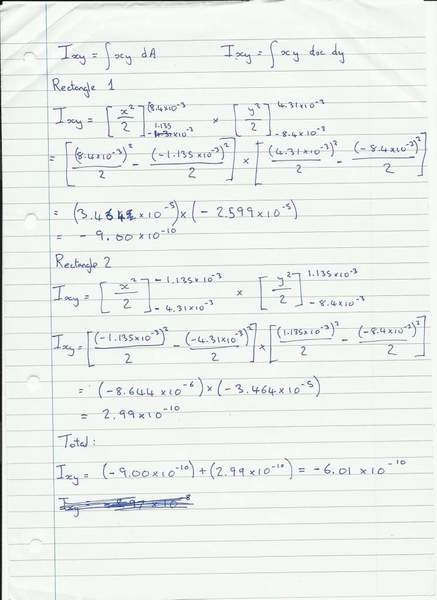 Ixy = ∫xy dA    Ixy = ∫xy dx dy
Rectangle 1
Ixy = [x²/2]_{-1.135×10⁻³}^{8.4×10⁻³} × [y²/2]_{-8.4×10⁻³}^{4.31×10⁻³}
= [(8.4×10⁻³)²/2 - (-1.135×10⁻³)²/2] × [(4.31×10⁻³)²/2 - (-8.4×10⁻³)²/2]
= (3.464×10⁻⁵) × (-2.599×10⁻⁵)
= -9.00×10⁻¹⁰
Rectangle 2
Ixy = [x²/2]_{-4.31×10⁻³}^{-1.135×10⁻³} × [y²/2]_{-8.4×10⁻³}^{1.135×10⁻³}
Ixy = [(-1.135×10⁻³)²/2 - (-4.31×10⁻³)²/2] × [(1.135×10⁻³)²/2 - (-8.4×10⁻³)²/2]
= (-8.644×10⁻⁶) × (-3.464×10⁻⁵)
= 2.99×10⁻¹⁰
Total:
Ixy = (-9.00×10⁻¹⁰) + (2.99×10⁻¹⁰) = -6.01 ×10⁻¹⁰